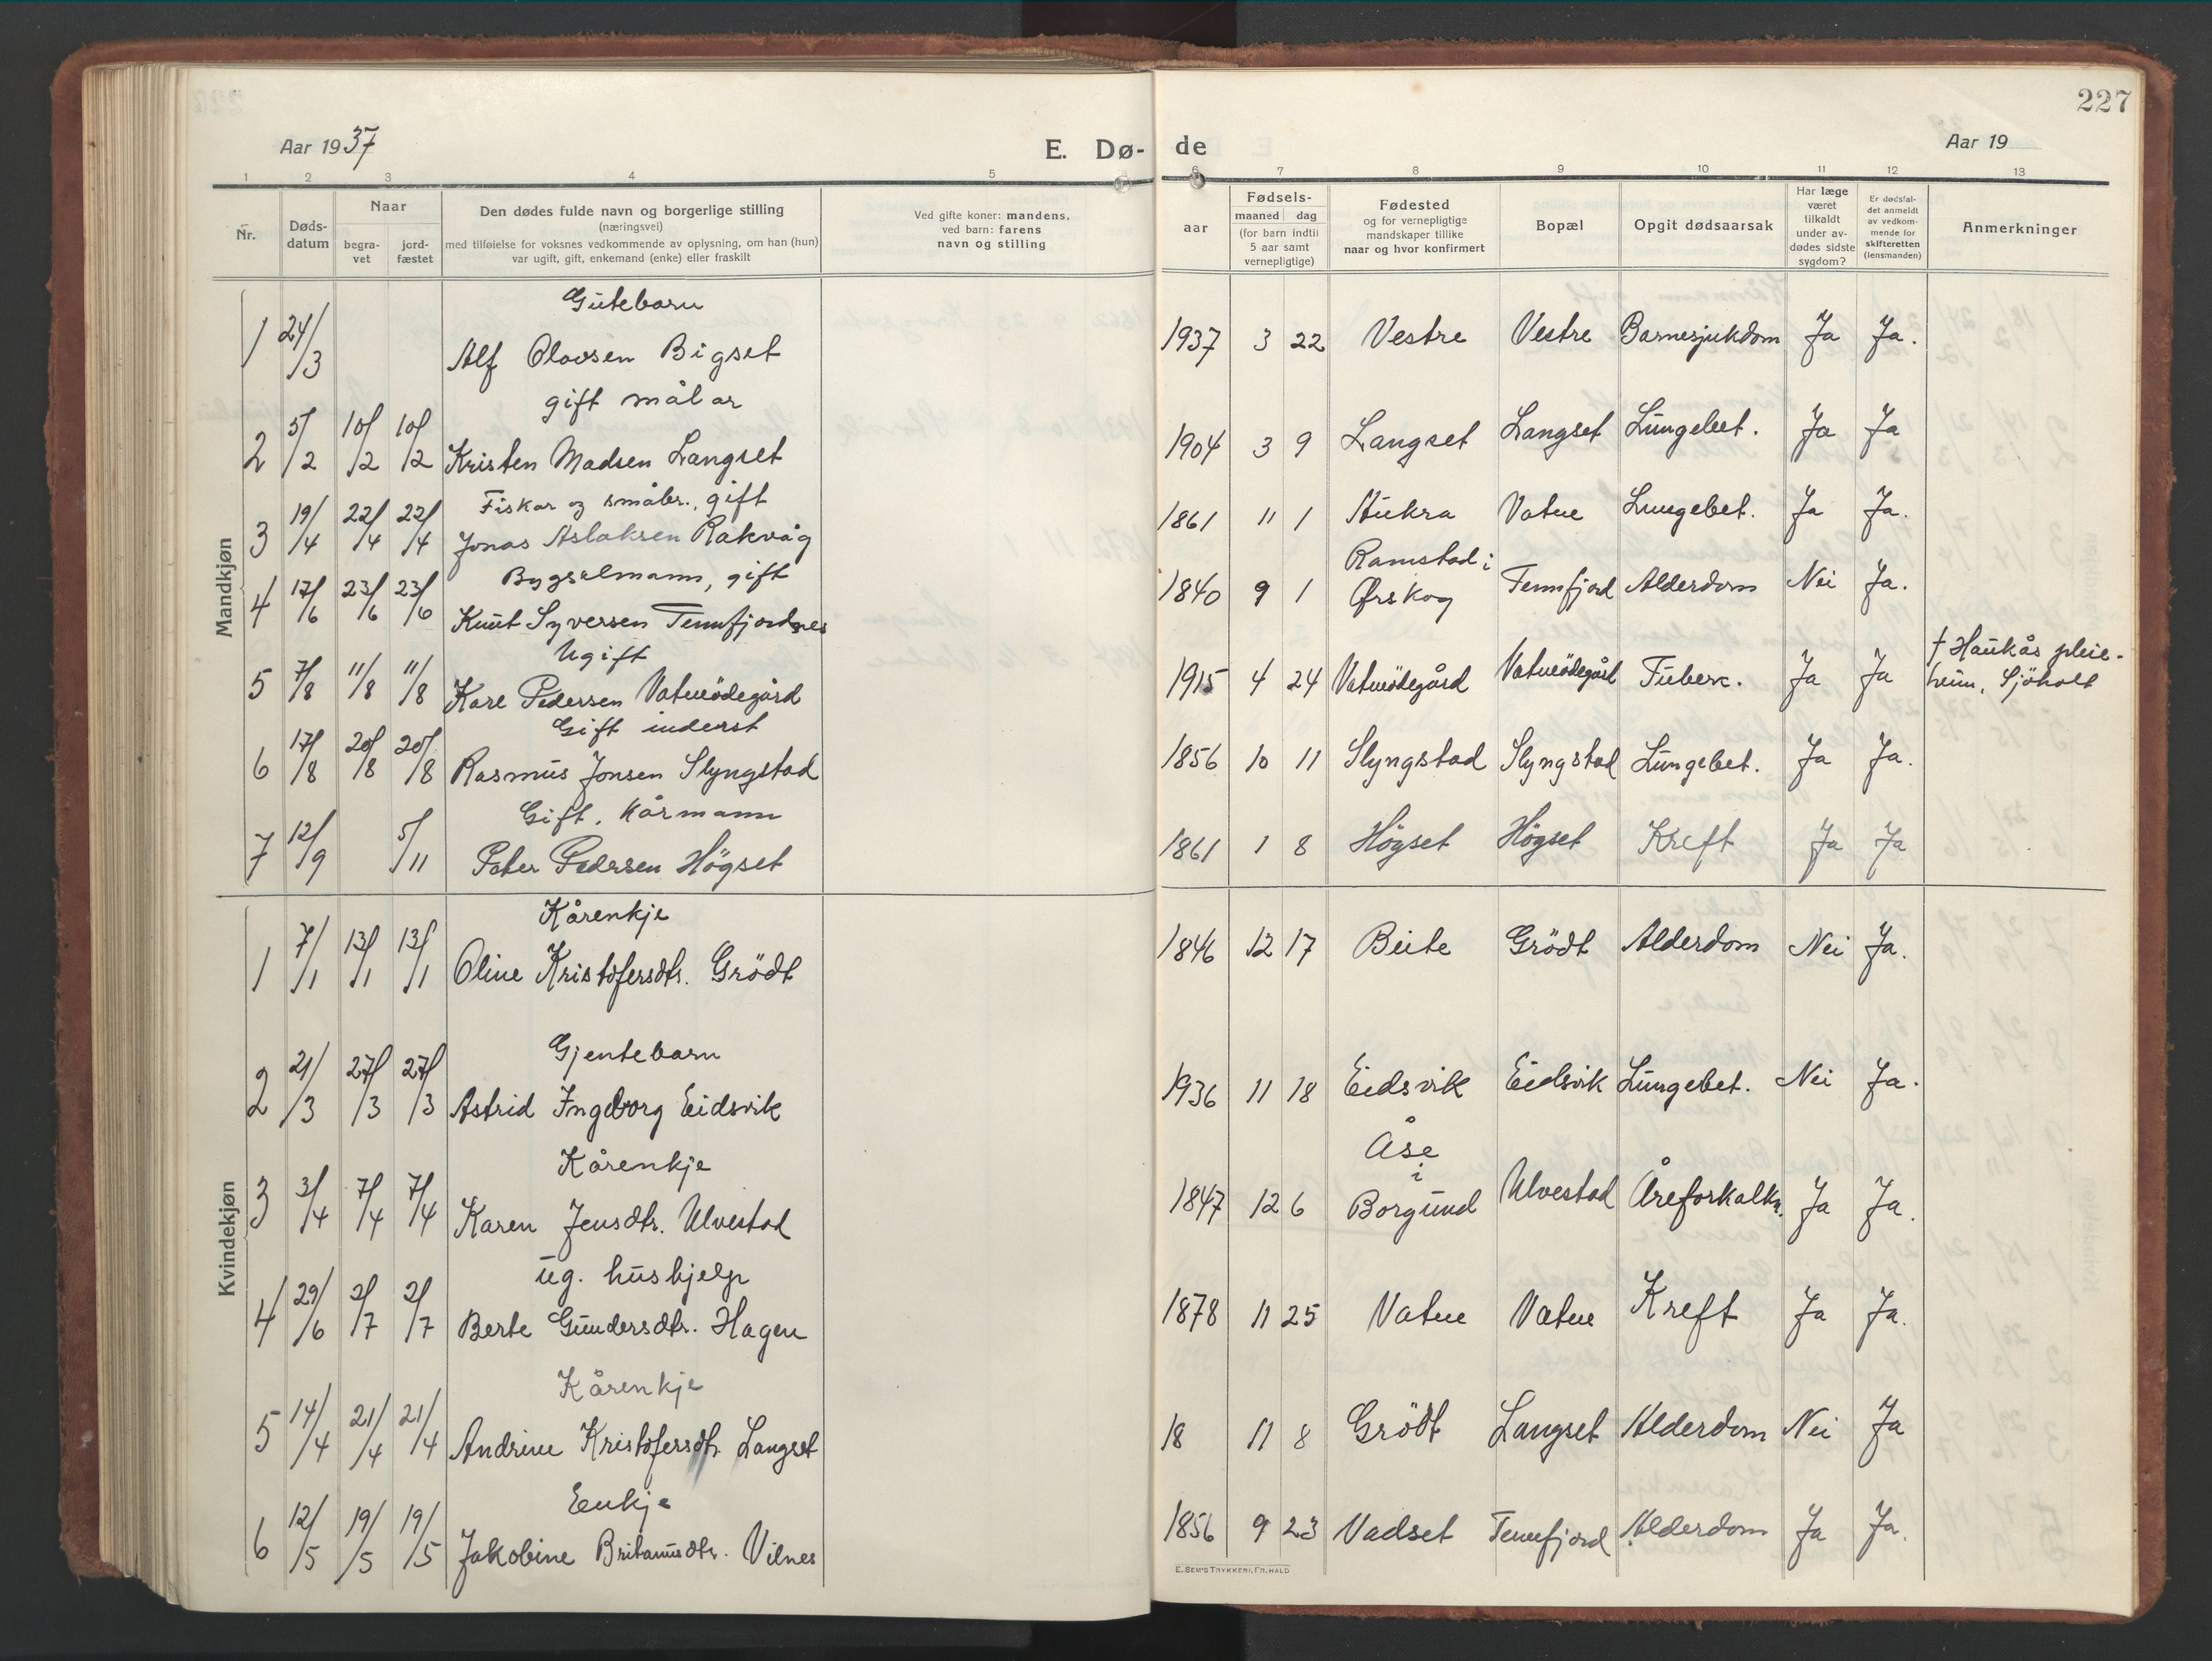 227
Aar 1937
E. Dø-
de
Aar 19
1 2 3 4 5 6 7 8 9 10 11 12 13
Nr.
Døds-
datum
Naar
begra-
vet
jord-
fæstet
Den dødes fulde navn og borgerlige stilling
(næringsvei)
med tilføielse for voksnes vedkommende av oplysning, om han (hun)
var ugift, gift, enkemand (enke) eller fraskilt
Ved gifte koner: mandens,
ved barn: farens
navn og stilling
aar
Fødsels-
maaned dag
(for barn indtil
5 aar samt
vernepligtige)
Fødested
og for vernepligtige
mandskaper tillike
naar og hvor konfirmert
Bopæl
Opgit dødsaarsak
Har læge
været
tilkaldt
under av-
dødes sidste
sygdom?
Er dødsfal-
det anmeldt
av vedkom-
mende for
skifteretten
(lensmanden)
Anmerkninger
Mandkjøn
Gutebarn
1 24/3 Alf Olavsen Bigset 1937 3 22 Vestre Vestre Barnesjukdom Ja Ja.
gift målar
2 5/2 10/2 10/2 Kristen Madsen Langset 1904 3 9 Langset Langset Lungebet. Ja Ja
Fiskar og småbr., gift
3 19/4 22/4 22/4 Jonas Aslaksen Rakvåg 1861 11 1 Aukra Vatne Lungebet. Ja Ja.
Bygselmann, gift Ramstad i
4 17/6 23/6 23/6 Knut Syversen Tennfjordnes 1840 9 1 Ørskog Tennfjord Alderdom Nei Ja.
Ugift † Haukås pleie-
5 7/8 11/8 11/8 Karl Pedersen Vatneödegård 1915 4 24 Vatneödegård Vatneödegård Tuberk. Ja Ja heim, Sjöholt
Gift inderst
6 17/8 20/8 20/8 Rasmus Jonsen Slyngstad 1856 10 11 Slyngstad Slyngstad Lungebet. Ja Ja.
Gift, Kårmann
7 12/9 5/11 Peter Pedersen Högset 1861 1 8 Högset Högset Kreft Ja Ja
Kvindekjøn
Kårenkje
1 7/1 13/1 13/1 Oline Kristofersdtr. Grödt 1846 12 17 Beite Grödt Alderdom Nei Ja.
Gjentebarn
2 21/3 27/3 27/3 Astrid Ingeborg Eidsvik 1936 11 18 Eidsvik Eidsvik Lungebet. Nei Ja.
Kårenkje Åse i
3 3/4 7/4 7/4 Karen Jensdtr. Ulvestad 1847 12 6 Borgund Ulvestad Åreforkalkn. Ja Ja.
ug. hushjelp
4 29/6 2/7 2/7 Berte Gundersdtr. Hagen 1878 11 25 Vatne Vatne Kreft Ja Ja.
Kårenkje
5 14/4 21/4 21/4 Andrine Kristofersdtr. Langset 18 11 8 Grödt Langset Alderdom Nei Ja
Eenkje
6 12/5 19/5 19/5 Jakobine Britanusdtr. Vilnes 1856 9 23 Vadset Tennfjord Alderdom Ja Ja.
E. SEM'S TRYKKERI, FR. HALD